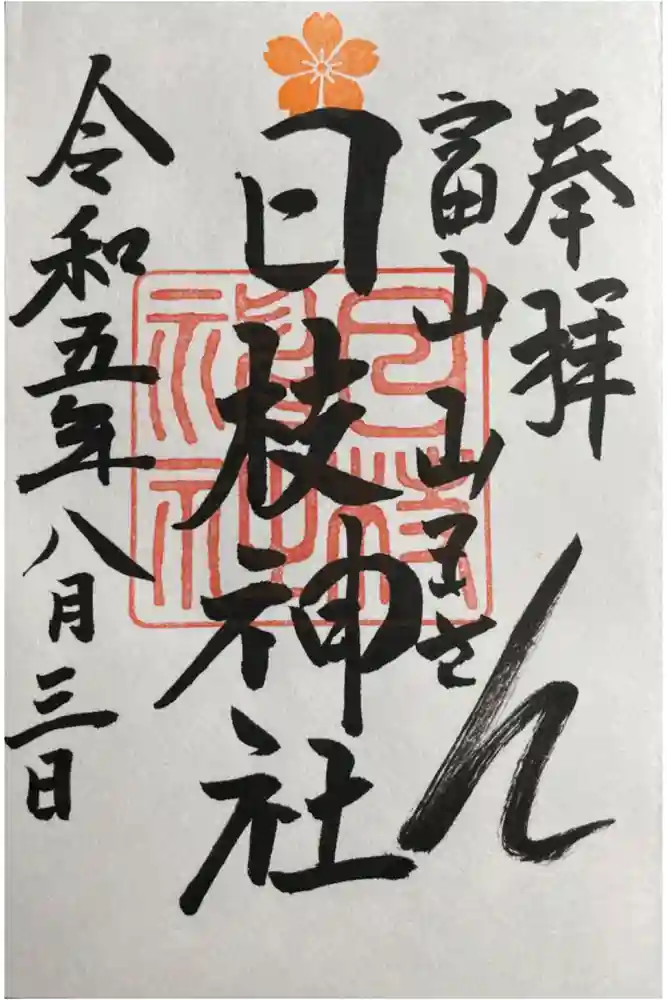 奉拝
富山山王さん
日枝神社
日枝神社
令和五年八月三日